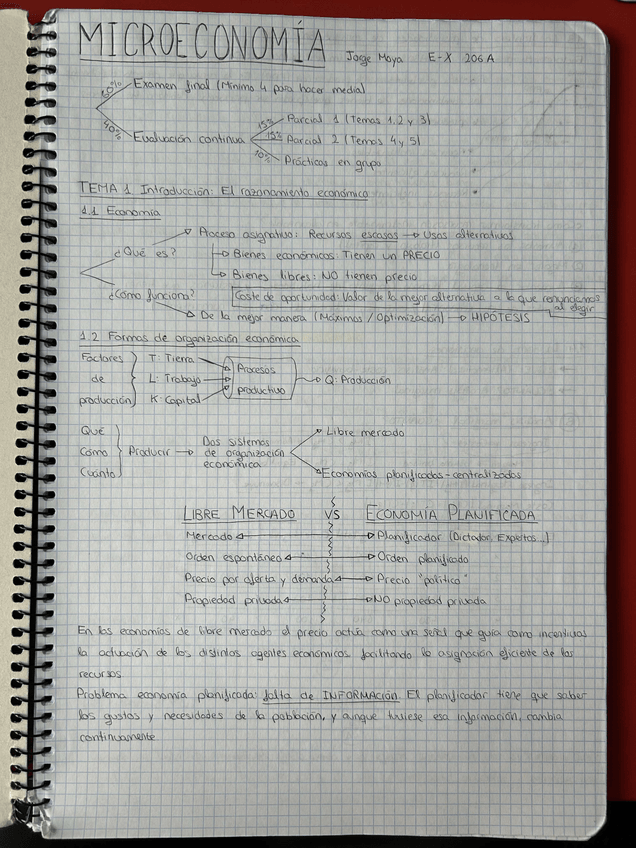 MICROECONOMÍA Jorge Moya E-X 206A
60% Examen final (Mínimo 4 para hacer media)
40% Evaluación continua
15% Parcial 1 (Temas 1, 2 y 3)
15% Parcial 2 (Temas 4 y 5)
10% Prácticas en grupo
TEMA 1 Introducción: El razonamiento económico
1.1 Economía
¿Qué es? Proceso asignativo: Recursos escasos → Usos alternativos
Bienes económicos: Tienen un PRECIO
Bienes libres: NO tienen precio
¿Cómo funciona? Coste de oportunidad: Valor de la mejor alternativa a la que renunciamos
al elegir
De la mejor manera (Máximos / Optimización) → HIPÓTESIS
1.2 Formas de organización económica
Factores de producción
T: Tierra
L: Trabajo
K: Capital
Procesos productivo
Q: Producción
Qué
Cómo
Cuánto
Producir → Dos sistemas
de organización
económica
Libre mercado
Economías planificadas-centralizadas
LIBRE MERCADO VS ECONOMÍA PLANIFICADA
Mercado Planificador (Dictador, Expertos...)
Orden espontáneo Orden planificado
Precio por oferta y demanda Precio "político"
Propiedad privada NO propiedad privada
En las economías de libre mercado el precio actúa como una señal que guía como incentivas
la actuación de los distintos agentes económicos facilitando la asignación eficiente de los
recursos
Problema economía planificada: falta de INFORMACIÓN. El planificador tiene que saber
los gustos y necesidades de la población, y aunque tuviese esa información, cambia
continuamente